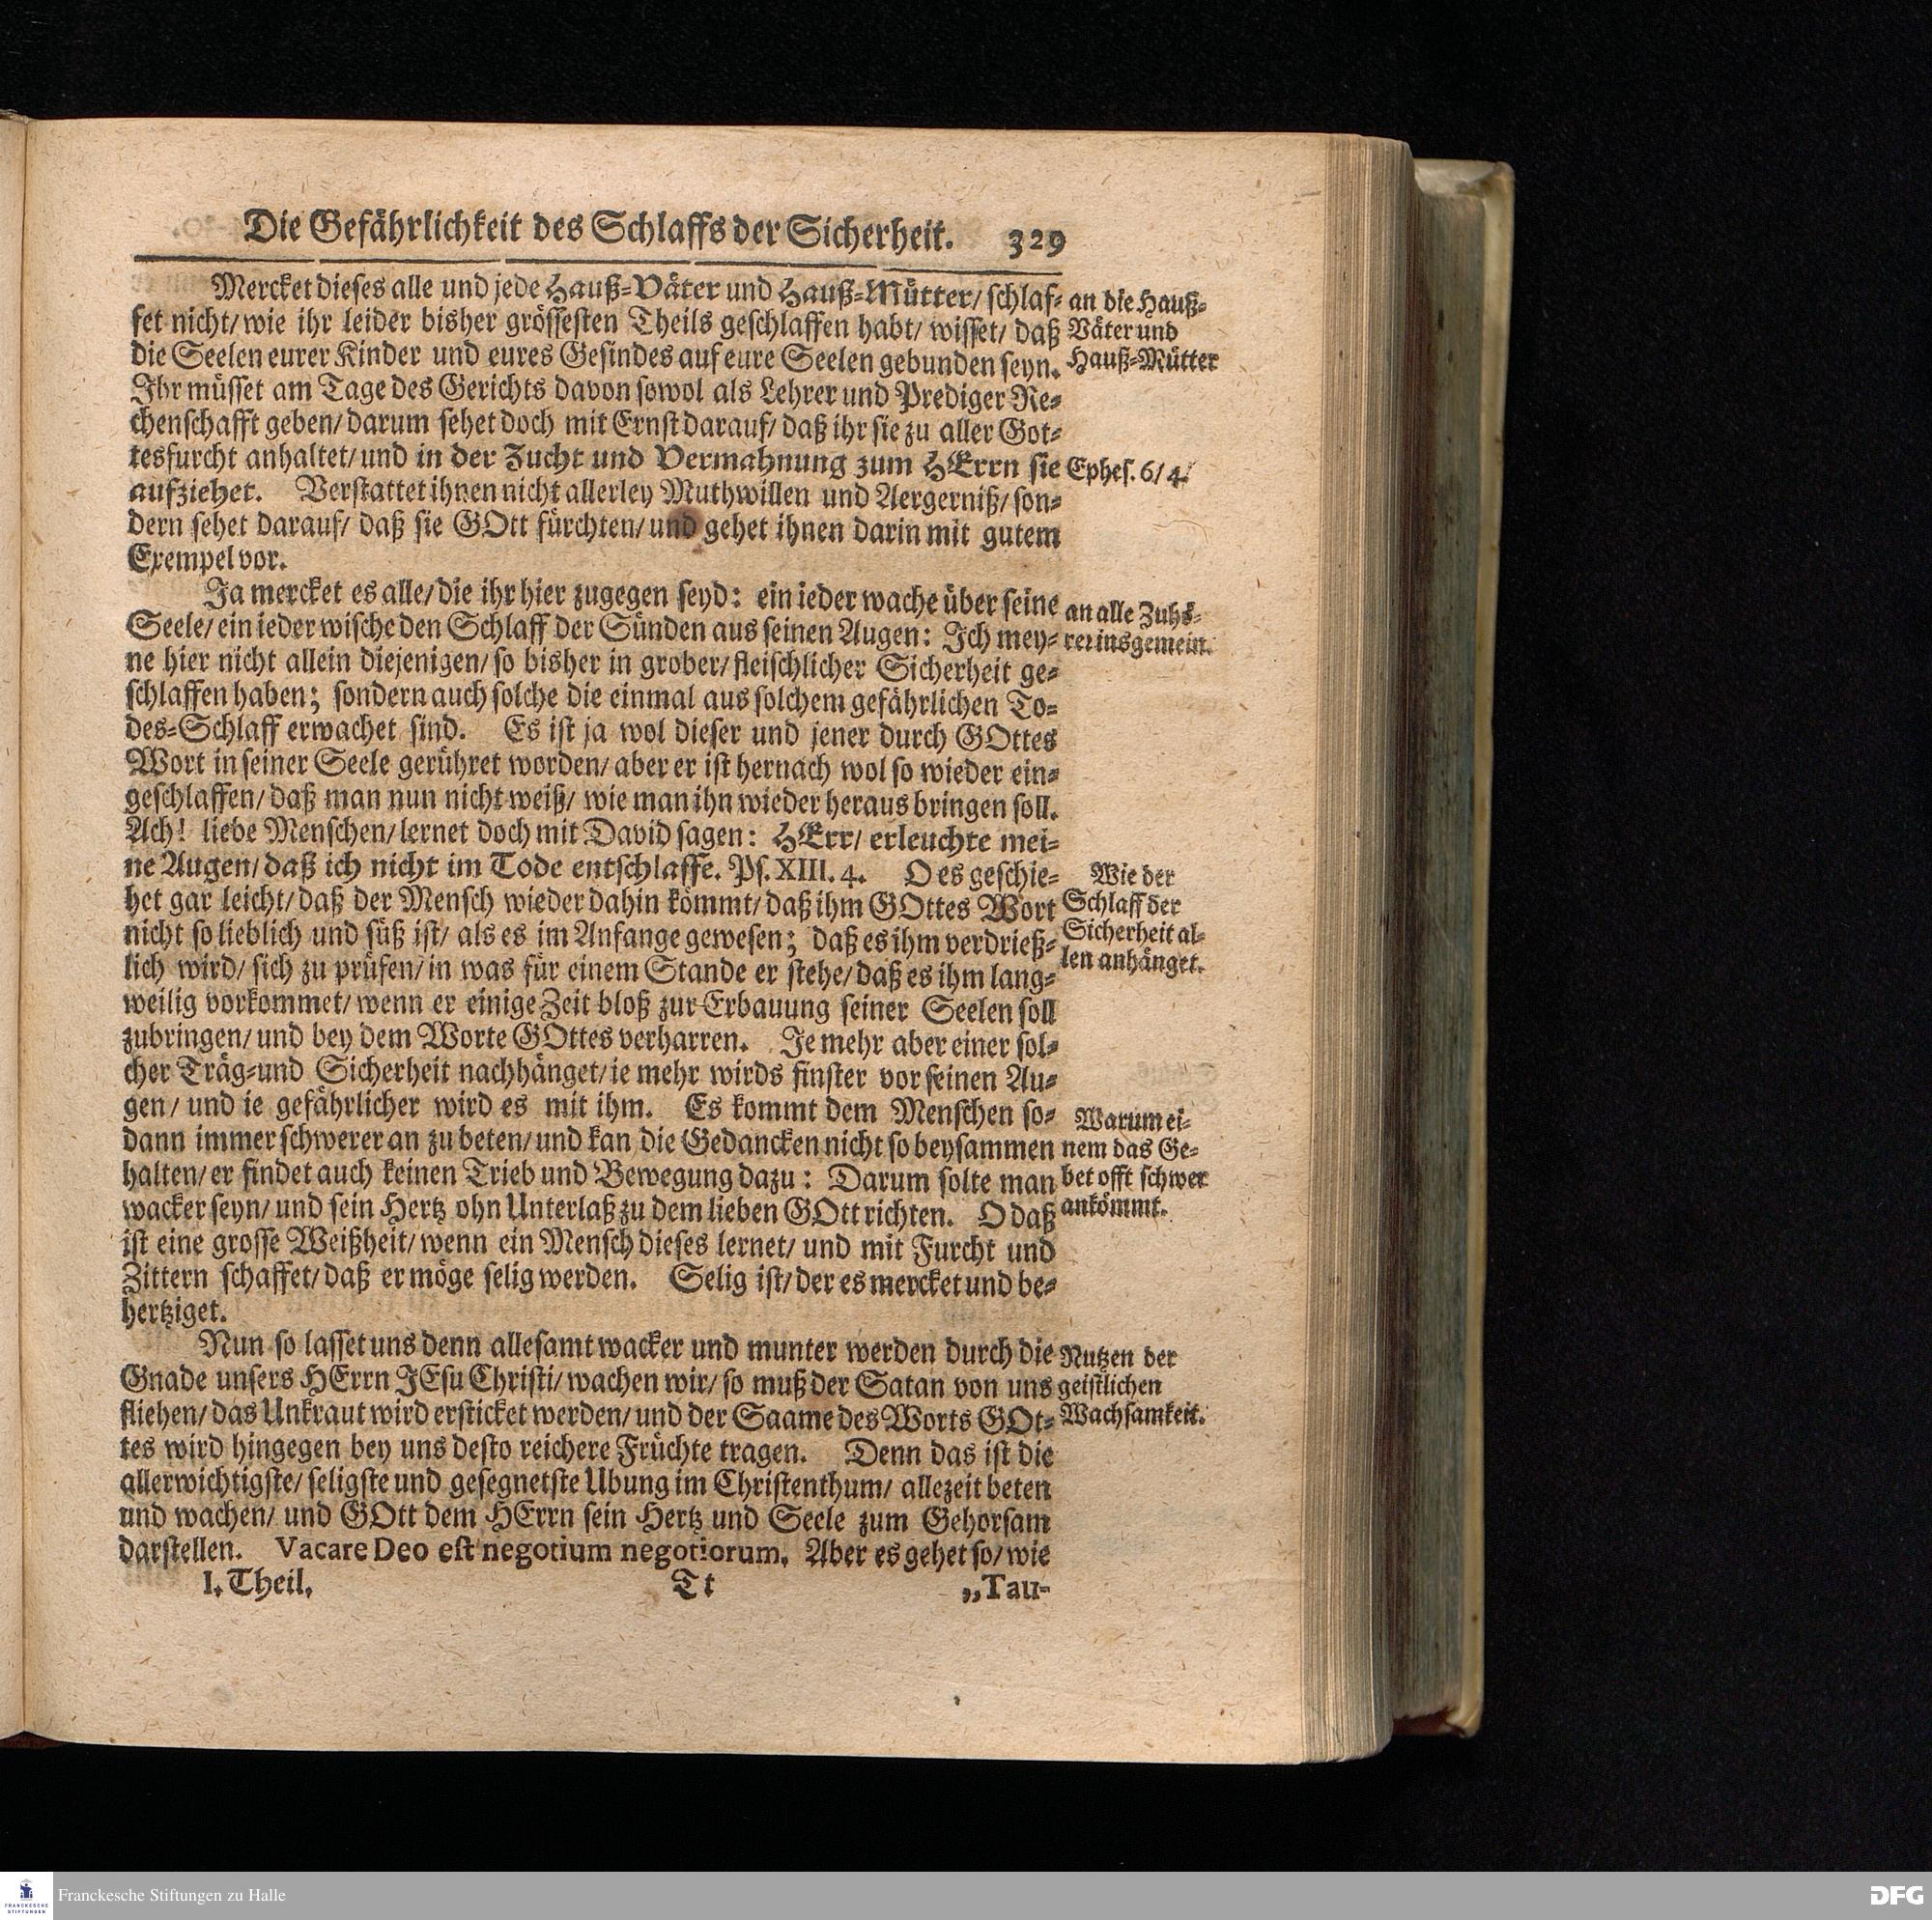 Die Gefährlichkeit des Schlaffs der Sicherheit. 329
Mercket dieses alle und jede Hauß-Väter und Hauß-Mütter/ schlaf-
fet nicht/ wie ihr leider bisher grössesten Theils geschlaffen habt/ wisset/ daß
die Seelen eurer Kinder und eures Gesindes auf eure Seelen gebunden seyn.
Ihr müsset am Tage des Gerichts davon sowol als Lehrer und Prediger Re-
chenschafft geben/ darum sehet doch mit Ernst darauf/ daß ihr sie zu aller Got-
tesfurcht anhaltet/ und in der Zucht und Vermahnung zum HErrn sie
aufziehet. Verstattet ihnen nicht allerley Muthwillen und Aergerniß/ son-
dern sehet darauf/ daß sie GOtt fürchten/ und gehet ihnen darin mit gutem
Exempel vor.
an die Hauß-
Väter und
Hauß-Mütter
Ephes. 6/ 4.
Ja mercket es alle/ die ihr hier zugegen seyd: ein ieder wache über seine
Seele/ ein ieder wische den Schlaff der Sünden aus seinen Augen: Ich mey-
ne hier nicht allein diejenigen/ so bisher in grober/ fleischlicher Sicherheit ge-
schlaffen haben; sondern auch solche die einmal aus solchem gefährlichen To-
des-Schlaff erwachet sind. Es ist ja wol dieser und jener durch GOttes
Wort in seiner Seele gerühret worden/ aber er ist hernach wol so wieder ein-
geschlaffen/ daß man nun nicht weiß/ wie man ihn wieder heraus bringen soll.
Ach! liebe Menschen/ lernet doch mit David sagen: HErr/ erleuchte mei-
ne Augen/ daß ich nicht im Tode entschlaffe. Ps. XIII. 4. O es geschie-
het gar leicht/ daß der Mensch wieder dahin kömmt/ daß ihm GOttes Wort
nicht so lieblich und süß ist/ als es im Anfange gewesen; daß es ihm verdrieß-
lich wird/ sich zu prüfen/ in was für einem Stande er stehe/ daß es ihm lang-
weilig vorkommet/ wenn er einige Zeit bloß zur Erbauung seiner Seelen soll
zubringen/ und bey dem Worte GOttes verharren. Je mehr aber einer sol-
cher Träg-und Sicherheit nachhänget/ ie mehr wirds finster vor seinen Au-
gen/ und ie gefährlicher wird es mit ihm. Es kommt dem Menschen so-
dann immer schwerer an zu beten/ und kan die Gedancken nicht so beysammen
halten/ er findet auch keinen Trieb und Bewegung dazu: Darum solte man
wacker seyn/ und sein Hertz ohn Unterlaß zu dem lieben GOtt richten. O daß
ist eine grosse Weißheit/ wenn ein Mensch dieses lernet/ und mit Furcht und
Zittern schaffet/ daß er möge selig werden. Selig ist/ der es mercket und be-
hertziget.
an alle Zuhö-
rer insgemein.
Wie der
Schlaff der
Sicherheit al-
len anhänget.
Warum ei-
nem das Ge-
bet offt schwer
ankömmt.
Nun so lasset uns denn allesamt wacker und munter werden durch die
Gnade unsers HErrn JEsu Christi/ wachen wir/ so muß der Satan von uns
fliehen/ das Unkraut wird ersticket werden/ und der Saame des Worts GOt-
tes wird hingegen bey uns desto reichere Früchte tragen. Denn das ist die
allerwichtigste/ seligste und gesegnetste Ubung im Christenthum/ allezeit beten
und wachen/ und GOtt dem HErrn sein Hertz und Seele zum Gehorsam
darstellen. Vacare Deo est negotium negotiorum. Aber es gehet so/ wie
Nutzen der
geistlichen
Wachsamkeit.
I. Theil. Tt „Tau-
Franckesche Stiftungen zu Halle
FRANCKESCHE
STIFTUNGEN
DFG